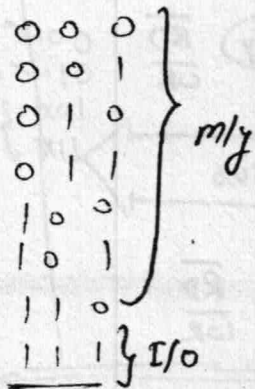 0 0 0
0 0 1
0 1 0
0 1 1
1 0 0
1 0 1
1 1 0
1 1 1
m/y
I/O